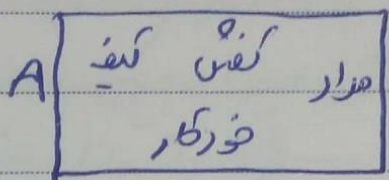 A مداد کفش کیف
خودکار